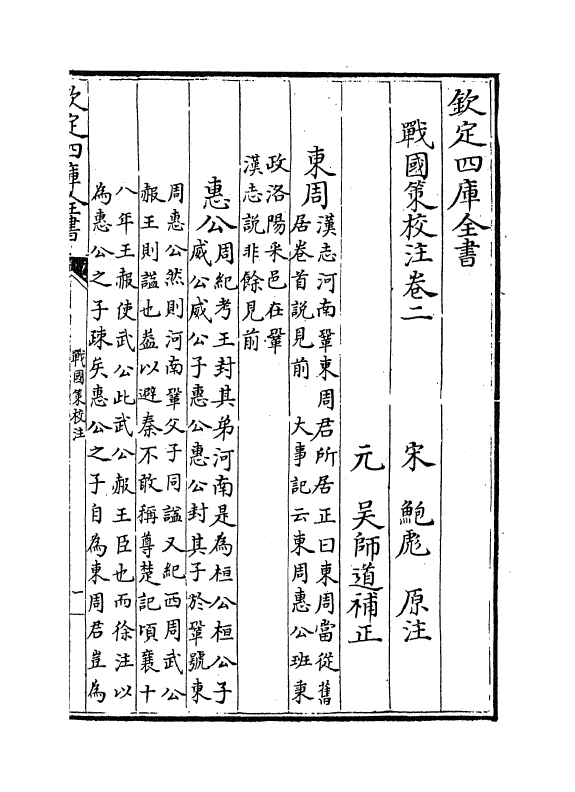 欽定四庫全書
戰國策校注卷二　宋　鮑彪　原注
元　吳師道補正
東周漢志河南鞏東周君所居正曰東周當從舊
居卷首説見前　大事記云東周惠公班秉
政洛陽采邑在鞏
漢志説非餘見前
惠公周紀考王封其弟河南是為桓公桓公子
威公威公子惠公惠公封其子於鞏號東
周惠公然則河南鞏父子同謚又紀西周武公
赧王則謚也葢以避秦不敢稱尊楚記頃襄十
八年王赧使武公此武公赧王臣也而徐注以
為惠公之子疎矣惠公之子自為東周君豈為
欽定四庫全書
戰國策校注
一